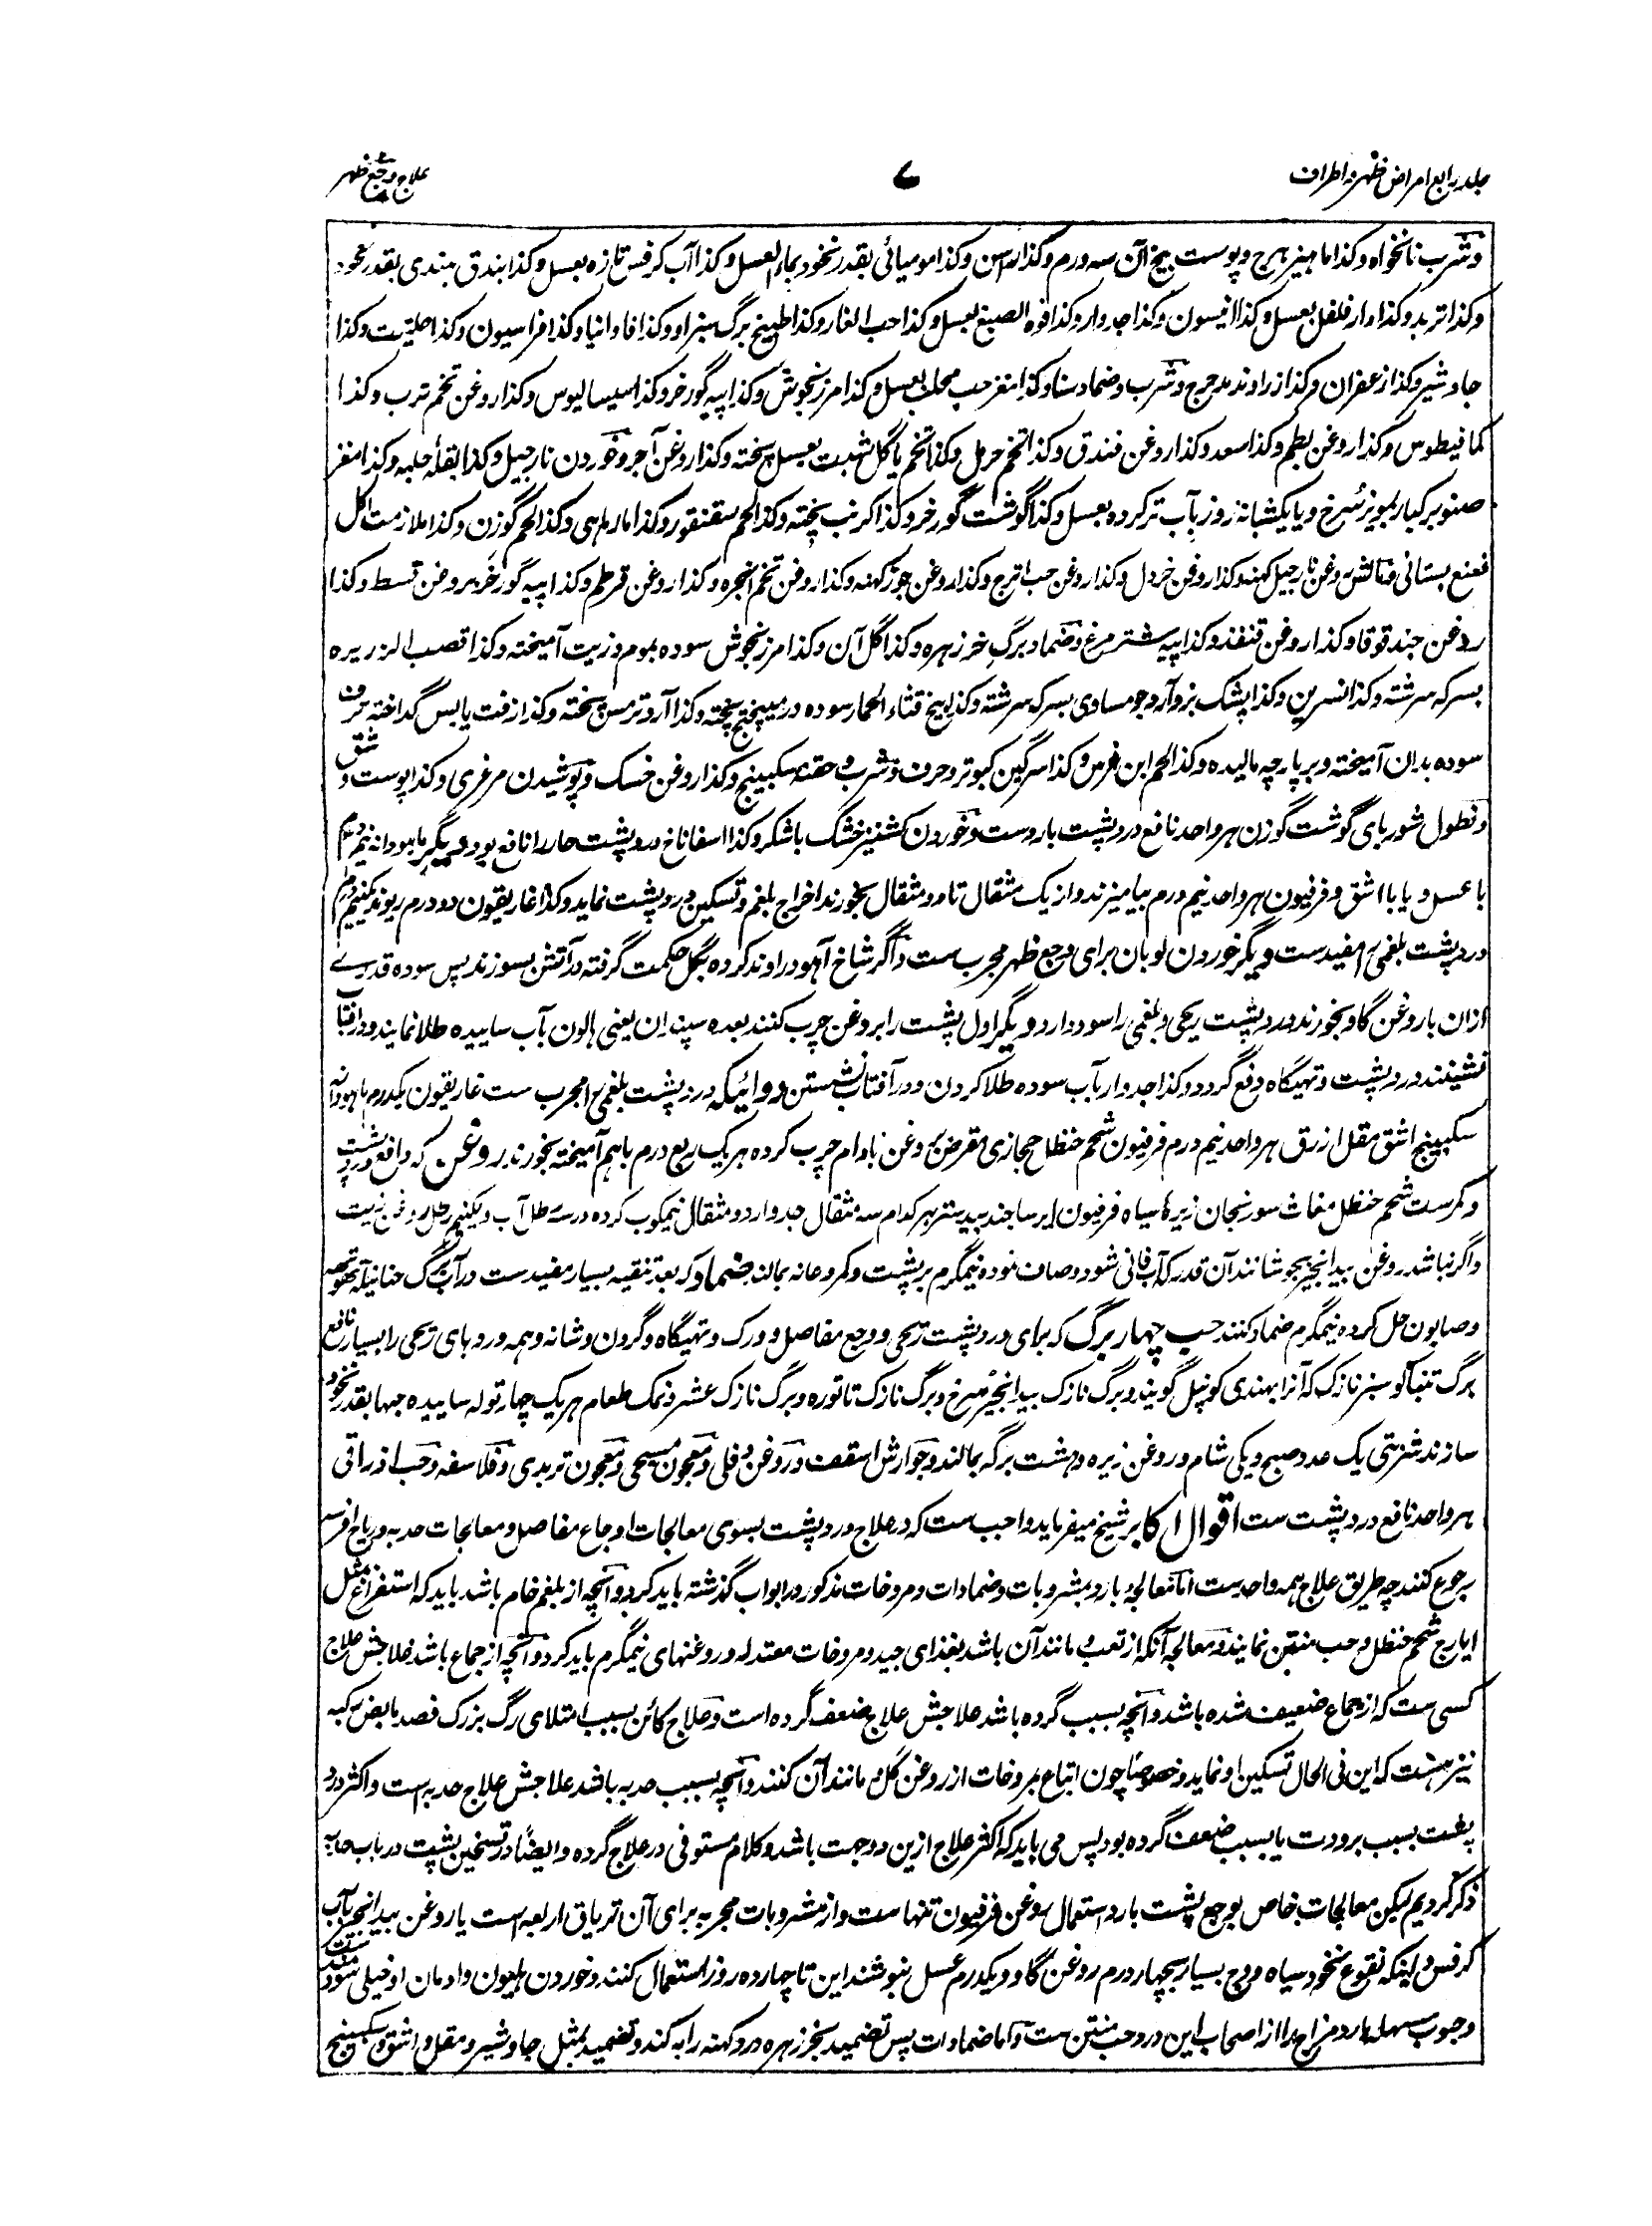 جلد رابع امراض ظهر و اطراف
۷
علاج وجع ظهر
و شرب نانخواه و کذا ماهیزهرج و پوست بیخ آن سه درم و کذا راسن و کذا مومیائی بقدر نخود بماء العسل و کذا آب کرفس تازه بعسل و کذا بندق هندی بقدر نخود
و کذا تربد و کذا دارفلفل بعسل و کذا انیسون و کذا جدوار و کذا فوه الصبغ بعسل و کذا حب الغار و کذا طبیخ برگ سبز او و کذا فاوانیا و کذا فراسیون و کذا حلتیت و کذا
جاوشیر و کذا زعفران و کذا زراوند مدحرج و شرب و ضماد سنا و کذا مغز حب محلب بعسل و کذا مرزنجوش و کذا پیه گورخر و کذا سیسالیوس و کذا روغن تخم ترب و کذا
کمافیطوس و کذا روغن بطم و کذا سعد و کذا روغن فندق و کذا تخم حرمل و کذا تخم یا گل شبت بعسل پخته و کذا روغن آجر و خوردن نارجیل و کذا بقلهٔ حلبه و کذا مغز
صنوبر کبار بمویز سرخ و یا یکشبانه روز بآب تر کرده بعسل و کذا گوشت گورخر و کذا کرنب پخته و کذا لحم سقنقور و کذا مارماهی و کذا لحم گوزن و کذا ملازمت اکل
نعنع بستانی و مالش روغن نارجیل کهنه و کذا روغن خردل و کذا روغن حب اترج و کذا روغن جوز کهنه و کذا روغن تخم انجره و کذا روغن قرطم و کذا پیه گورخر بروغن قسط و کذا
روغن جندقوقا و کذا روغن قنفذ و کذا پیه شترمرغ و ضماد برگ خرزهره و کذا گل آن و کذا مرزنجوش سوده بموم و زیت آمیخته و کذا قصب الذریره
بسرکه سرشته و کذا نسرین و کذا پشک بز و آرد جو مساوی بسرکه سرشته و کذا بیخ قثاء الحمار سوده در میپختج پخته و کذا آرد ترمس پخته و کذا زفت یابس گداخته حرف
سوده بدان آمیخته و بر پارچه مالیده و کذا لحم ابن عرس و کذا سرگین کبوتر و حرف و شرب و حقنه سکبینج و کذا روغن خسک و پوشیدن مرغزی و کذا پوست وشق
و نطول شوربای گوشت گوزن هر واحد نافع درد پشت باردست و خوردن کشنیز خشک باشکر و کذا اسفاناخ درد پشت حار را نافع بود دیگر ماهودانه نیم درم
با عسل و یا با اشق و فرفیون هر واحد نیم درم بیامیزند و از یک مثقال تا دو مثقال بخورند اخراج بلغم و تسکین درد پشت نماید و کذا غاریقون دو درم ریوند یکنیم درم
درد پشت بلغمی را مفیدست دیگر خوردن لوبان برای وجع ظهر مجرب ست و اگر شاخ آهو در اوند کرده بگل حکمت گرفته در آتش بسوزند پس سوده قدرے
ازان با روغن گاو بخورند درد پشت ریحی و بلغمی را سود دارد دیگر اول پشت را بروغن چرب کنند بعده سپندان یعنی هالون بآب ساییده طلا نمایند و در آفتاب
نشینند درد پشت و تهیگاه دفع گردد و کذا جدوار بآب سوده طلا کردن و در آفتاب نشستن دوائیکه درد پشت بلغمی را مجرب ست غاریقون یکدرم ماهودانه
سکبینج اشق مقل ازرق هر واحد نیم درم فرفیون شحم حنظل حجازی مقرض بروغن بادام چرب کرده هر یک ربع درم باهم آمیخته بخورند روغن که دافع درد پشت
و کمرست شحم حنظل مغاث سورنجان زیره سیاه فرفیون ایرسا جندبیدستر هر کدام سه مثقال جدوار دو مثقال نیمکوب کرده در سه رطل آب و یکنیم رطل روغن زیت
و اگر نباشد روغن بیدانجیر بجوشانند آن قدر که آب فانی شود و صاف نموده نیمگرم بر پشت و کمر و عانه بمالند ضماد که بعد تنقیه بسیار مفیدست در آب برگ حنا نیله تهوتهه
و صابون حل کرده نیمگرم ضماد کنند حب چهار برگ که برای درد پشت ریحی و وجع مفاصل و ورک و تهیگاه و گردن و شانه و همه دردهای ریحی را بسیار نافع
برگ تنباکو سبز نازک که آنرا بهندی کونپل گویند و برگ نازک بیدانجیر سرخ و برگ نازک تاتوره و برگ نازک عشر و نمک طعام هر یک چهار توله ساییده حبها بقدر نخود
سازند شربتی یک عدد صبح و یکی شام و روغن زیره و هشت برگه بمالند و جوارش اسقف و روغن دفلی و معجون مسیحی و معجون تربدی و فلاسفه و حب اذراقی
هر واحد نافع درد پشت ست اقوال اکابر شیخ میفرماید واجب ست که در علاج درد پشت بسوی معالجات اوجاع مفاصل و معالجات حدبه و ریاح افرسه
رجوع کنند چه طریق علاج همه واحدست اما معالجه بارد بمشروبات و ضمادات و مروخات مذکور در ابواب گذشته باید کرد و آنچه از بلغم خام باشد باید که استفراغ مثل
ایارج شحم حنظل و حب منتن نمایند و معالجه آنکه از تعب و مانند آن باشد بغذای جید و مروخات معتدله و روغنهای نیمگرم باید کرد و آنچه از جماع باشد علاجش علاج
کسی ست که از جماع ضعیف شده باشد و آنچه بسبب گرده باشد علاجش علاج ضعف گرده است و علاج کائن بسبب امتلای رگ بزرگ فصد مابض رکبه
نیز هست که این فی الحال تسکین او نماید و خصوصا چون اتباع بمروخات از روغن گل و مانند آن کنند و آنچه بسبب حدبه باشد علاجش علاج حدبه است و اکثر درد
پشت بسبب برودت یا بسبب ضعف گرده بود پس می باید که اکثر علاج ازین دو جهت باشد و کلام مستوفی در علاج گرده و ایضا در تسخین پشت در باب حدبه
ذکر کردیم لیکن معالجات خاص بوجع پشت بارد استعمال روغن فرفیون تنهاست و از مشروبات مجربه برای آن تریاق اربعه است یا روغن بیدانجیر بآب
کرفس و اینکه نقوع نخود سیاه و رج بسیار بچهار درم روغن گاو و یکدرم عسل بنوشند این تا چهارده روز استعمال کنند و خوردن هلیون و ادمان او خیلی سودمند ست
و جوب مسهل بارد مزاج را از اصحاب این درد حب منتن ست و اما ضمادات پس تضمید بخرزهره درد کهنه را به کند و تضمید بمثل جاوشیر و مقل و اشق و سکبینج